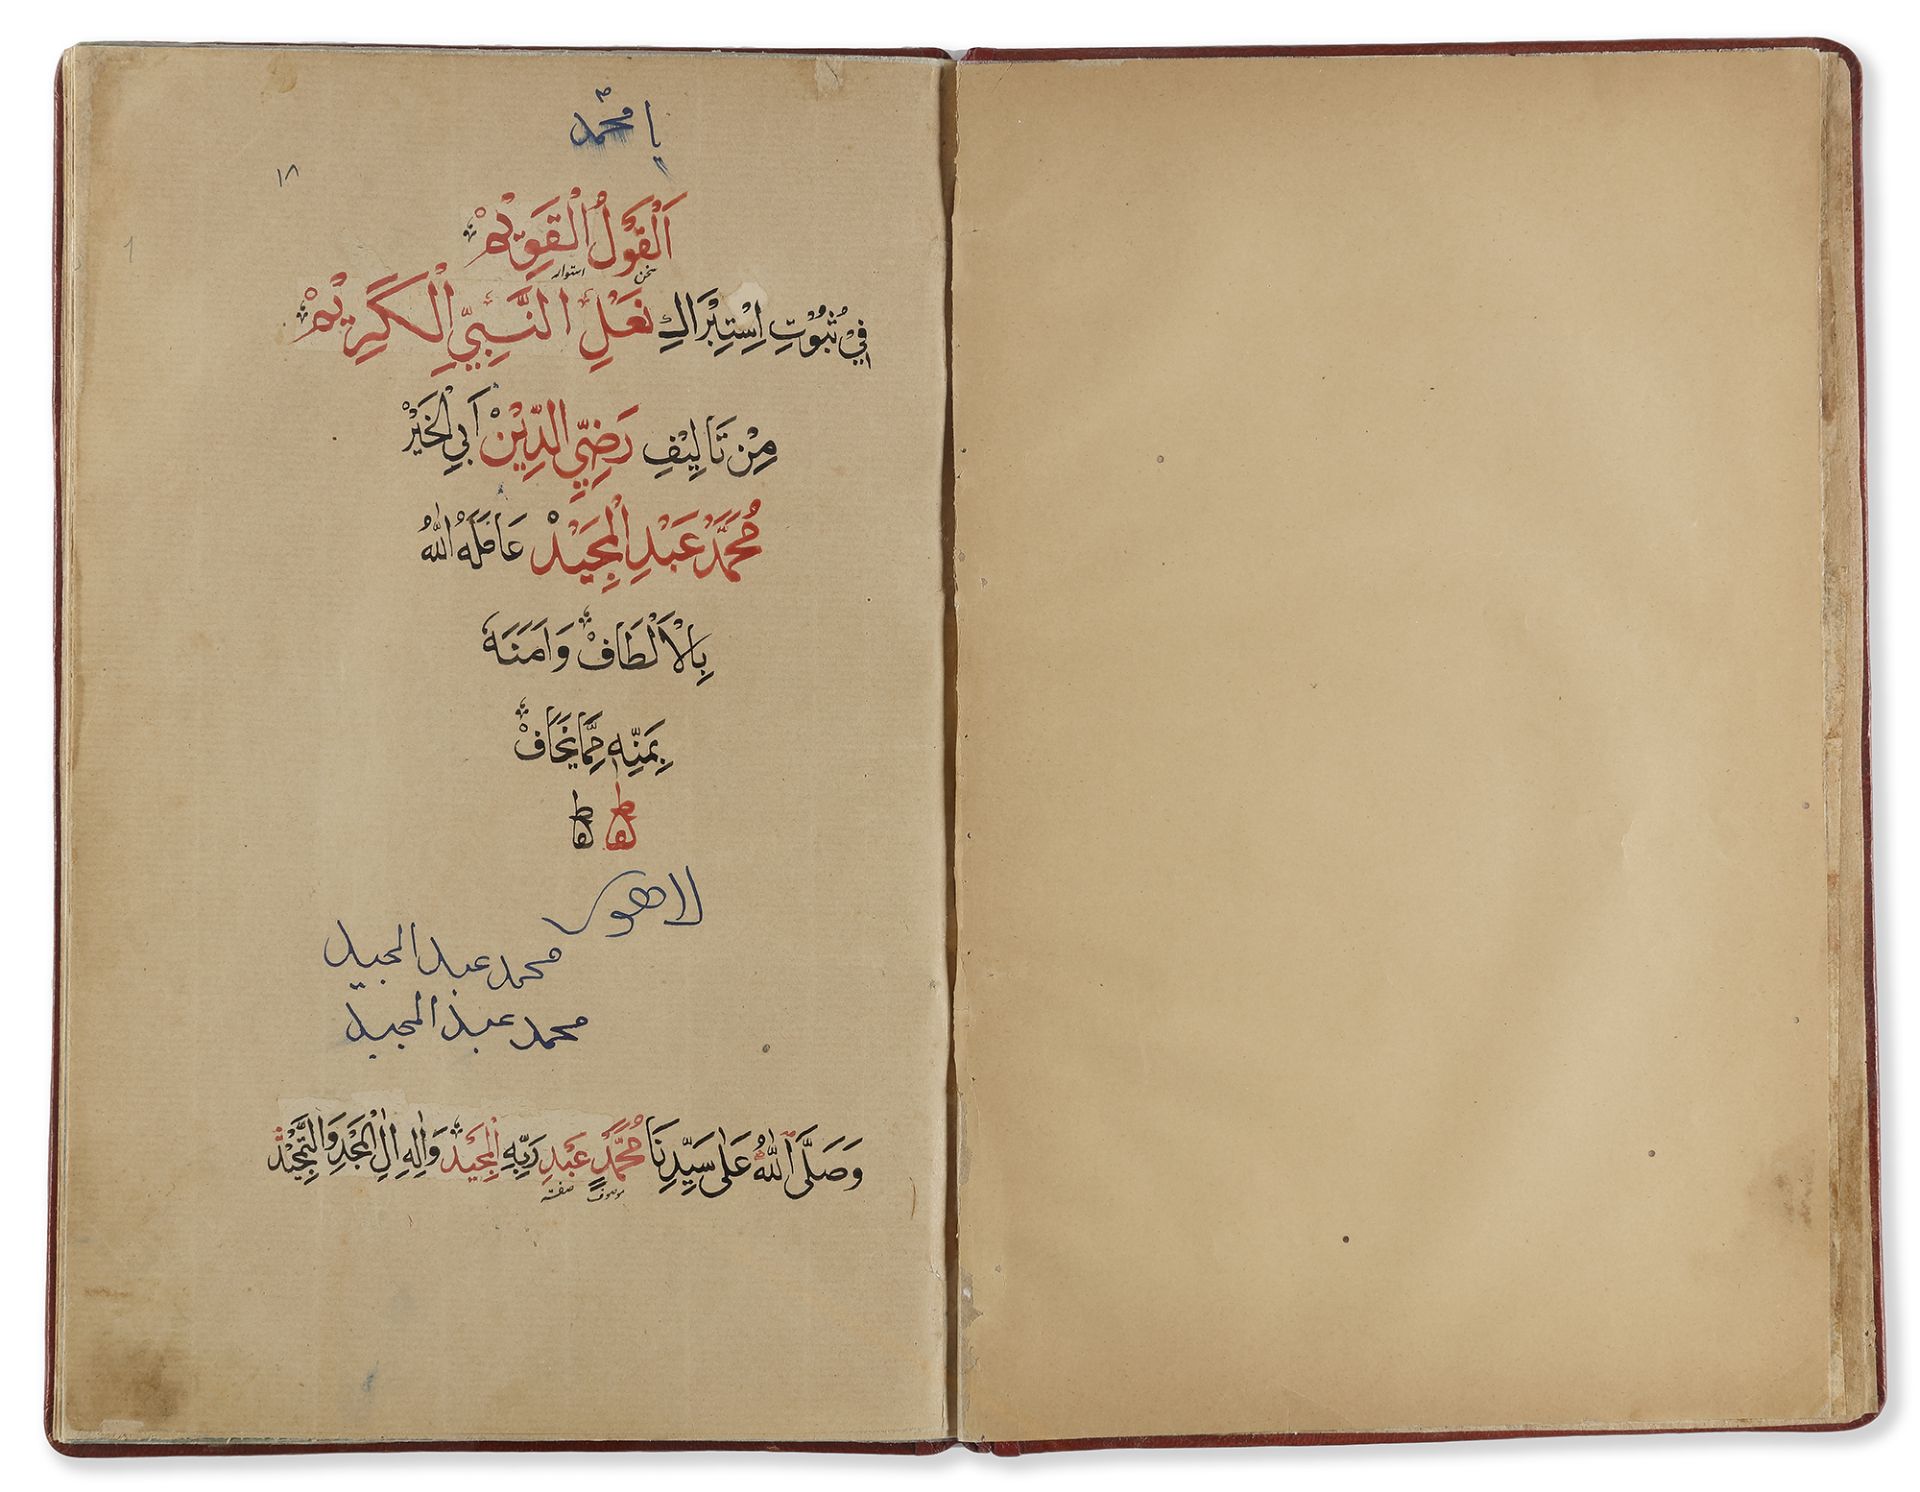 يا محمد
١٨
اَلْقَوْلُ الْقَوِيْمْ
سخن استوار
فِيْ ثُبُوْتِ اِسْتِبْرَاكِ نَعْلِ النَّبِيِّ الْكَرِيْمْ
مِنْ تَالِيْفِ رَضِيِّ الدِّيْنْ اَبِي الْخَيْرْ
مُحَمَّدْ عَبْدِ الْمَجِيْدْ عَامَلَهُ اللهُ
بِالْاَلْطَافْ وَاٰمَنَهٗ
بِمَنِّهٖ مِمَّا يَخَافْ
لاهور
محمد عبد المجيد
محمد عبد المجيد
وَصَلَّى اللهُ عَلٰى سَيِّدِنَا مُحَمَّدٍ عَبْدِ رَبِّهِ الْمَجِيْدْ وَاٰلِهٖ اٰلِ الْمَجْدِ وَالتَّمْجِيْدْ
موصوف صفت